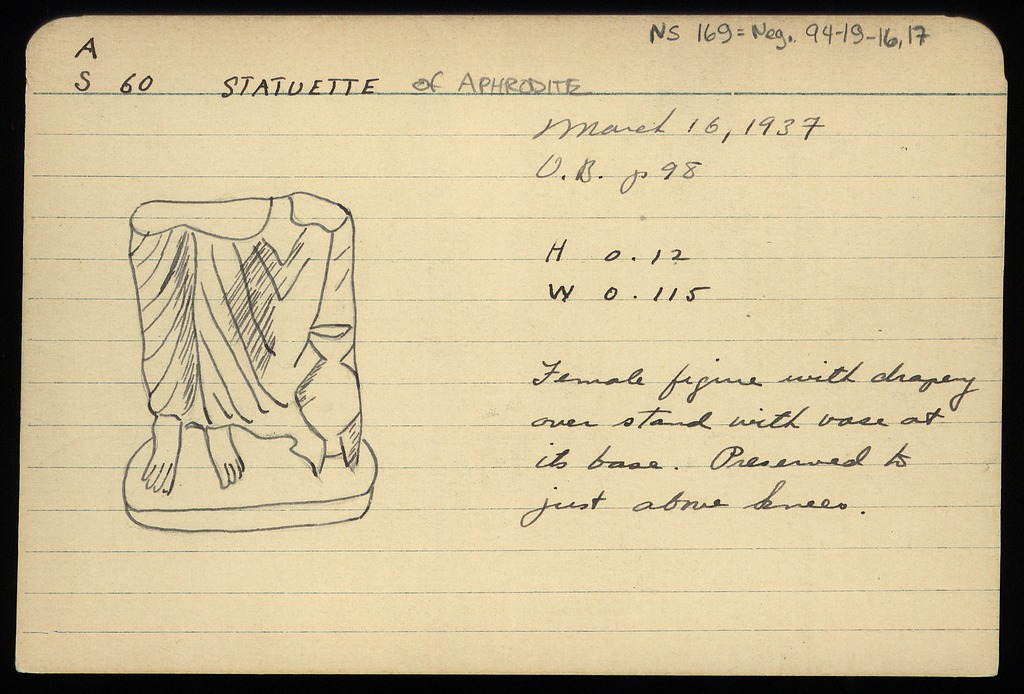 NS 169 = Neg. 94-19-16,17
A
S 60 STATUETTE of APHRODITE
March 16, 1937
V.B. p 98
H 0.12
W 0.115
Female figure with drapery
over stand with vase at
its base. Preserved to
just above knees.